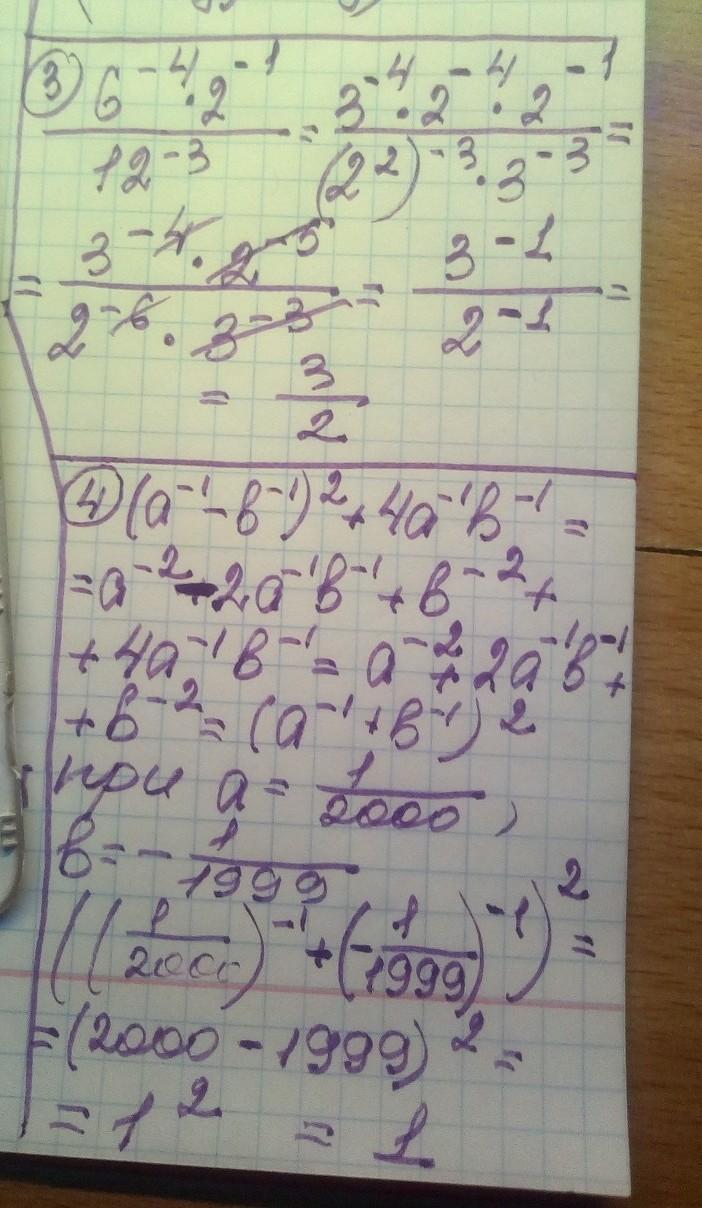 ③ 6⁻⁴·2⁻¹ / 12⁻³ = 3⁻⁴·2⁻⁴·2⁻¹ / (2²)⁻³·3⁻³ =
= 3⁻⁴·2⁻⁵ / 2⁻⁶·3⁻³ = 3⁻¹ / 2⁻¹ =
= 3/2
④ (a⁻¹-b⁻¹)²+4a⁻¹b⁻¹ =
=a⁻²-2a⁻¹b⁻¹+b⁻²+
+4a⁻¹b⁻¹= a⁻²+2a⁻¹b⁻¹+
+b⁻²=(a⁻¹+b⁻¹)²
при a= 1/2000,
b=- 1/1999
((1/2000)⁻¹+(-1/1999)⁻¹)²=
=(2000-1999)²=
=1² = 1